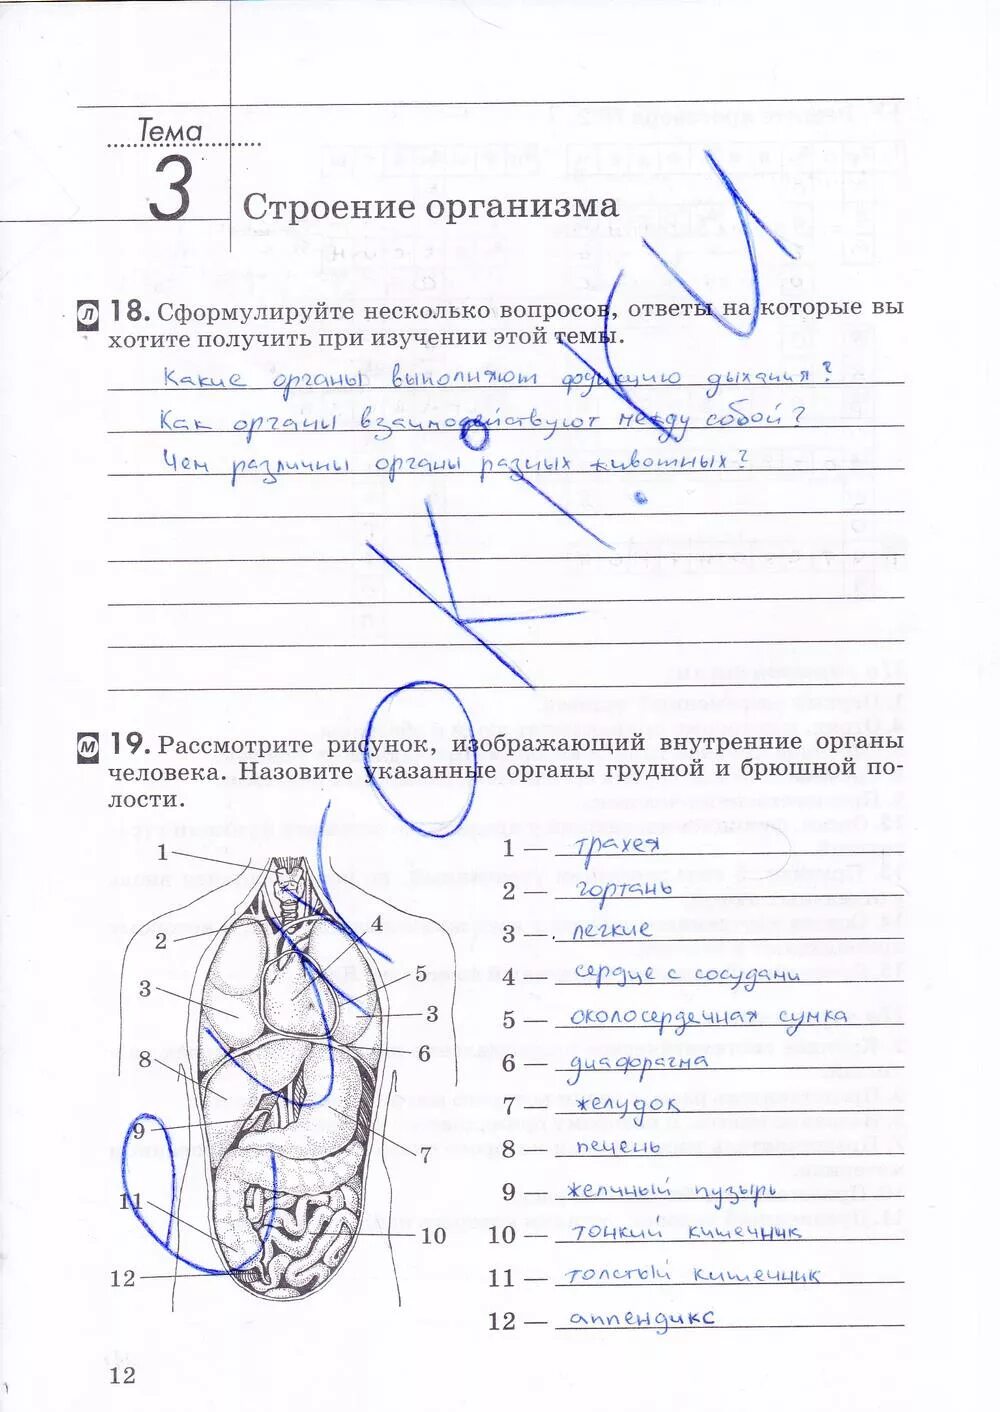 Тема
3
Строение организма
Л 18. Сформулируйте несколько вопросов, ответы на которые вы
хотите получить при изучении этой темы.
Какие органы выполняют функцию дыхания?
Как органы взаимодействуют между собой?
Чем различны органы разных животных?
М 19. Рассмотрите рисунок, изображающий внутренние органы
человека. Назовите указанные органы грудной и брюшной по-
лости.
1 — трахея
2 — гортань
3 — легкие
4 — сердце с сосудами
5 — околосердечная сумка
6 — диафрагма
7 — желудок
8 — печень
9 — желчный пузырь
10 — тонкий кишечник
11 — толстый кишечник
12 — аппендикс
1
2
4
3
5
3
6
8
9
7
11
10
12
12